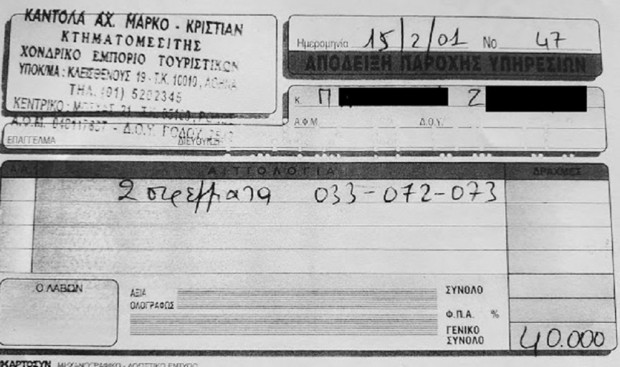 ΚΑΝΤΟΛΑ ΑΧ. ΜΑΡΚΟ - ΚΡΙΣΤΙΑΝ
ΚΤΗΜΑΤΟΜΕΣΙΤΗΣ
ΧΟΝΔΡΙΚΟ ΕΜΠΟΡΙΟ ΤΟΥΡΙΣΤΙΚΩΝ
ΥΠΟΚ/ΜΑ: ΚΛΕΙΣΘΕΝΟΥΣ 19 - Τ.Κ. 10010, ΑΘΗΝΑ
ΤΗΛ. (01) 5202345
ΚΕΝΤΡΙΚΟ:
Α.Φ.Μ. - Δ.Ο.Υ. ΡΟΔΟΥ
ΕΠΑΓΓΕΛΜΑ
Ημερομηνία 15/2/01 Νο 47
ΑΠΟΔΕΙΞΗ ΠΑΡΟΧΗΣ ΥΠΗΡΕΣΙΩΝ
Κ Π Ζ
Α.Φ.Μ. Δ.Ο.Υ.
ΑΙΤΙΟΛΟΓΙΑ ΔΡΑΧΜΕΣ
2 στρέμματα 033-072-073
Ο ΛΑΒΩΝ
ΑΞΙΑ
ΟΛΟΓΡΑΦΩΣ
ΣΥΝΟΛΟ
Φ.Π.Α. %
ΓΕΝΙΚΟ
ΣΥΝΟΛΟ 40.000